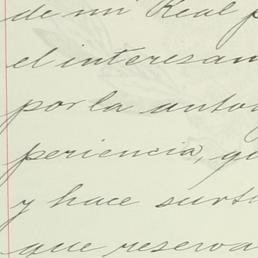 de mi Real p
el interesan
por la autor
periencia, qu
y hace surti
que reserva